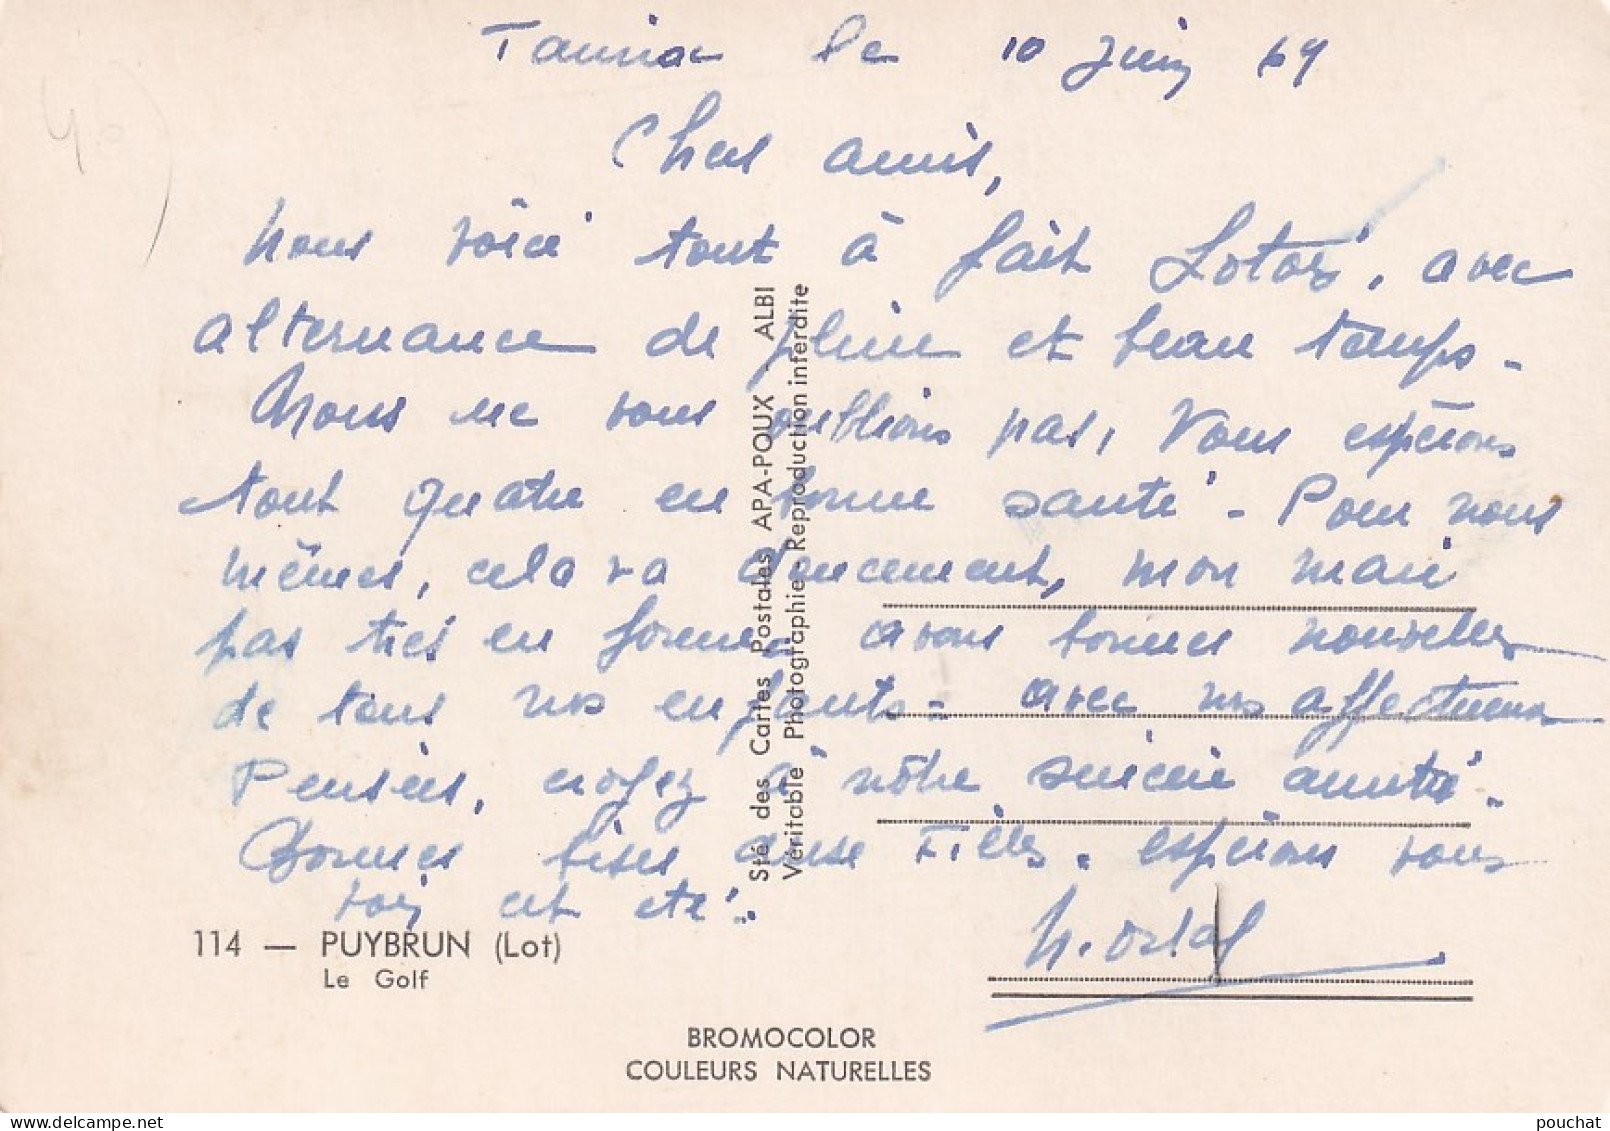 Tauriac le 10 Juin 69
Chers amis,
Nous voici tout à fait Lotois, avec
alternance de pluie et beau temps -
Nous ne vous oublions pas, Vous espérons
tout quatre en bonne santé - Pour nous
mêmes, cela va doucement, mon mari
pas très en forme. avons bonnes nouvelles
de tous nos enfants - avec nos affectueuses
Pensées, croyez à nôtre sincère amitié.
Bonnes bises aux Filles. espérons vous
voir cet été.
114 — PUYBRUN (Lot)
Le Golf
BROMOCOLOR
COULEURS NATURELLES
Sté des Cartes Postales APA-POUX - ALBI
Véritable Photographie - Reproduction interdite
pouchat